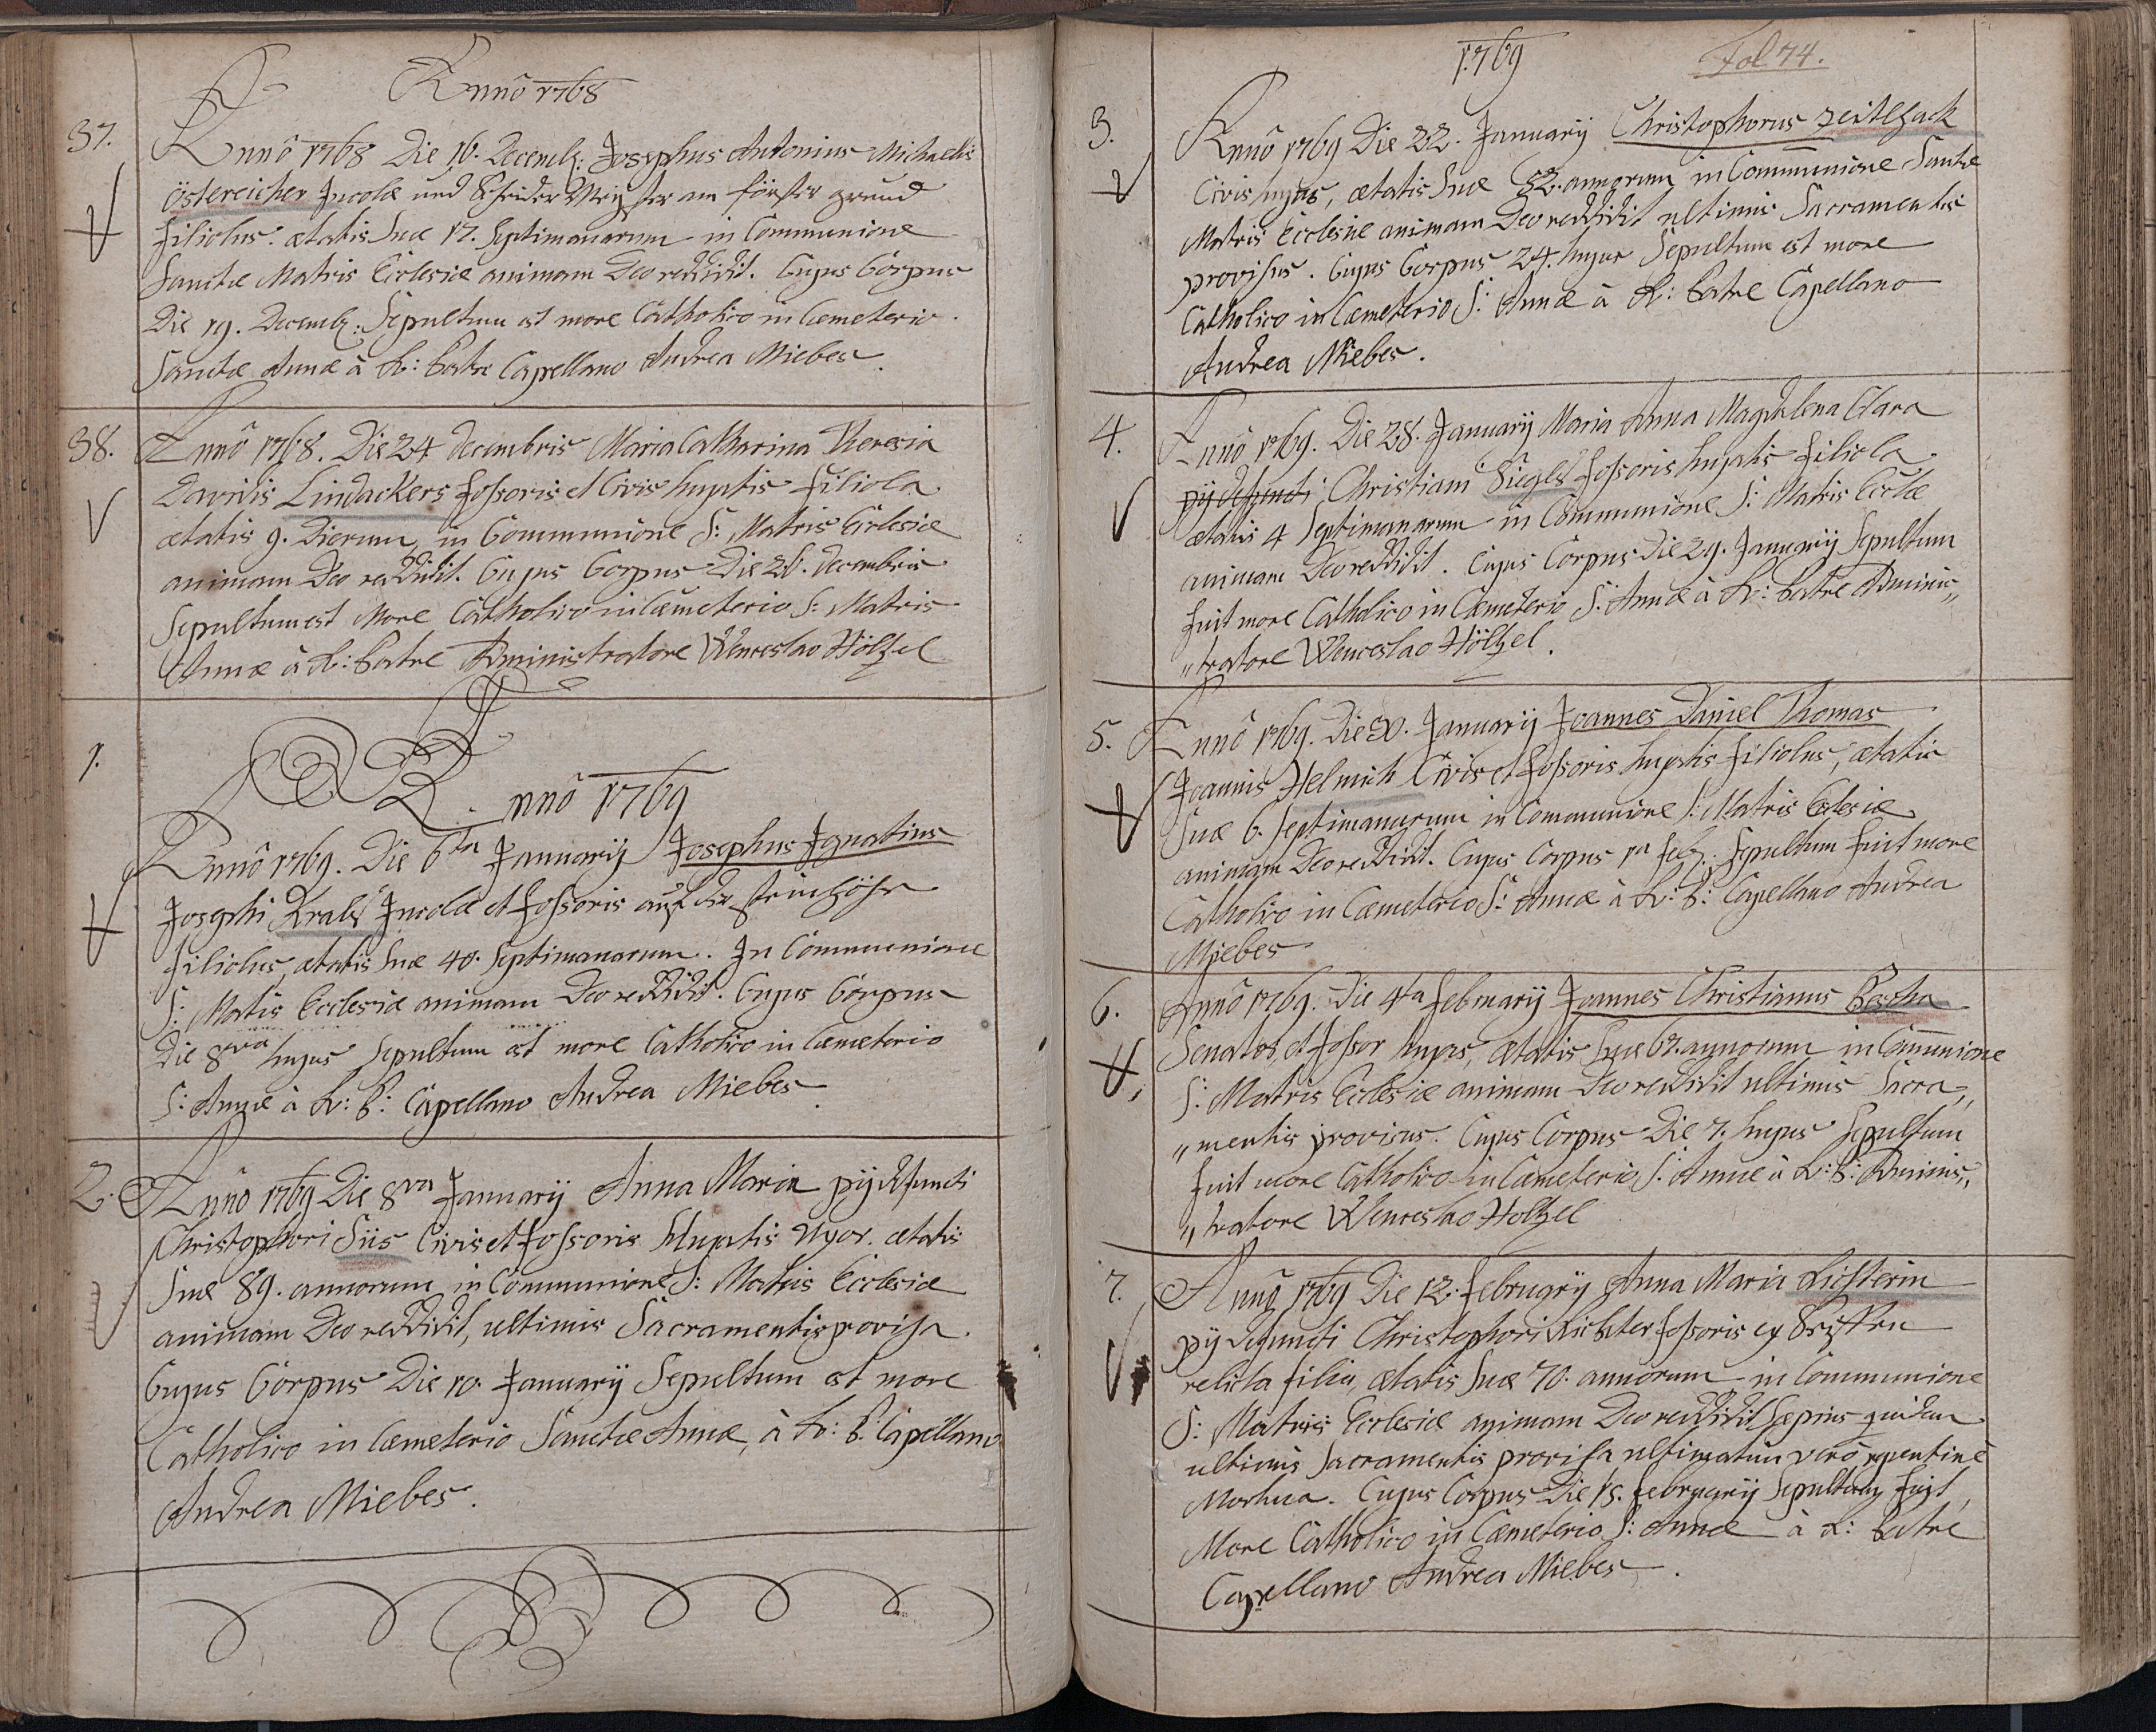 Annô 1768
37.
Annô 1768 Die 16. Decemb: Josephus Antonius Michaelis
Östereicher Incolæ und Schneider Meister am förster grund
filiolus. ætatis Suæ 17. Septimanarum in Communione
Sanctæ Matris Ecclesiæ animam Deo reddidit. Cujus Corpus
Die 19. Decemb: Sepultum est more Catholico in Cæmeterio.
Sanctæ Annæ â R: Patre Capellano Andrea Miebes.
38.
Annô 1768. Die 24 Decembris Maria Catharina Theresia
Davidis Lindackers fossoris et Civis hujatis filiola
ætatis 9. Dierum, in Communione S: Matris Ecclesiæ
animam Deo reddidit. Cujus Corpus Die 26. Decembris
Sepultum est More Catholico in Cæmeterio S: Matris
Annæ â R: Patre Administratore Wenceslao Höltzel
1.
Annô 1769
Annô 1769. Die 6ta Januarij Josephus Ignatius
Josephi Krals Incolæ et fossoris auf der steinhöhe
filiolus, ætatis Suæ 40. Septimanarum. In Communione
S: Matris Ecclesiæ animam Deo reddidit. Cujus Corpus
Die 8va hujus Sepultum est more Catholico in Cæmeterio
S: Annæ â R: P: Capellano Andrea Miebes.
2.
Annô 1769 Die 8va Januarij Anna Maria pij defuncti
Christophori Siis Civis et fossoris Hujatis uxor. ætatis
Suæ 89. annorum in Communione S: Matris Ecclesiæ
animam Deo reddidit, ultimis Sacramentis provisa.
Cujus Corpus Die 10. Januarij Sepultum est more
Catholico in Cæmeterio Sanctæ Annæ, â R: P: Capellano
Andrea Miebes.
1769
Fol 74.
3.
Annô 1769 Die 22. Januarij Christophorus Zeitlhack
Civis hujas, ætatis Suæ 52. annorum in Com̅unione Sanctæ
Matris Ecclesiæ animam Deo reddidit ultimis Sacramentis
provisus. Cujus Corpus 24. hujus Sepultum est more
Catholico in Cæmeterio S: Annæ â R: Patre Capellano
Andrea Miebes.
4.
Annô 1769. Die 28. Januarij Maria Anna Magdalena Clara
pij defuncti Christiani Siegls fossoris hujatis filiola.
ætatis 4 Septimanarum in Communione S: Matris Eccl̅æ
animam Deo reddidit. Cujus Corpus Die 29. Januarij Sepultum
fuit more Catholico in Cæmeterio S: Annæ â R: Patre Adminis„
„tratore Wenceslao Höltzel.
5.
Annô 1769. Die 30. Januarij Joannes Daniel Thomas
Joannis Helmich Civis et fossoris hujatis filiolus, ætatis
Suæ 6. Septimanarum in Communione S: Matris Eclesiæ
animam Deo reddidit. Cujus Corpus 1a feb: Sepultum fuit more
Catholico in Cæmeterio S: Annæ â R: P: Capellano Andrea
Miebes
6.
Annô 1769. Die 4ta februarij Joannes Christianus Pescha
Senator, et fossor hujas, ætatis Suæ 67. annorum in Com̅unione
S: Matris Ecclesiæ animam Deo reddidit ultimis Sacra„
„mentis provisus. Cujus Corpus Die 7. hujus Sepultum
fuit more Catholico in Cæmeterio S: Annæ â R: P: Adminis„
„tratore Wenceslao Holtzel
7.
Annô 1769 Die 12. februarij Anna Maria Richterin
pij defuncti Christophori Richter fossoris ex
relicta filia, ætatis Suæ 70. annorum in Communione
S: Matris Ecclesiæ animam Deo reddidit sæpius quidem
ultimis Sacramentis provisa ultimatim verô repentinê
Mortua. Cujus Corpus Die 15. februarij Sepultum fuit
More Catholico in Cæmeterio S: Annæ â R: Patre
Capellano Andrea Miebes.